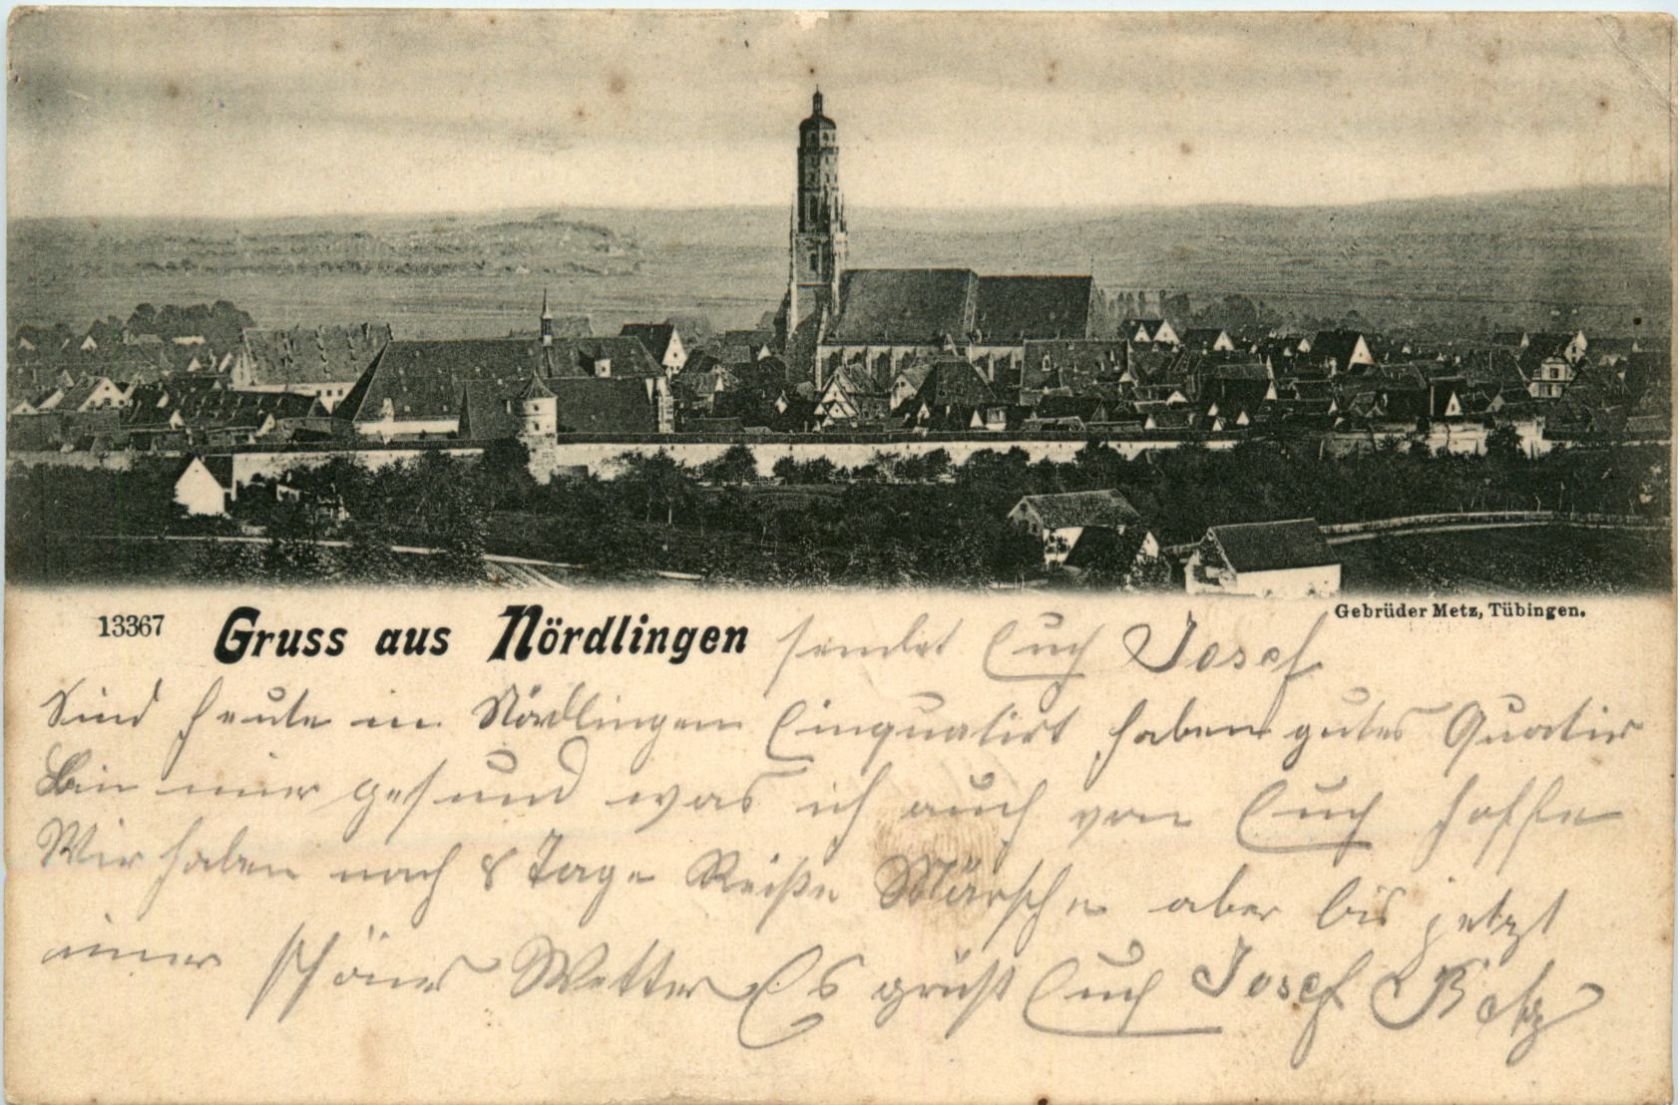 13367 Gruss aus Nördlingen sendet Euch Josef
Gebrüder Metz, Tübingen.
Sind heute in Nördlingen Einquatirt haben gutes Quatir
Bin imer gesund was ich auch von Euch hoffe
Wir haben noch 8 Tage Reiße Märsche aber bis jetzt
imer schönes Wetter Es grüßt Euch Josef Betz